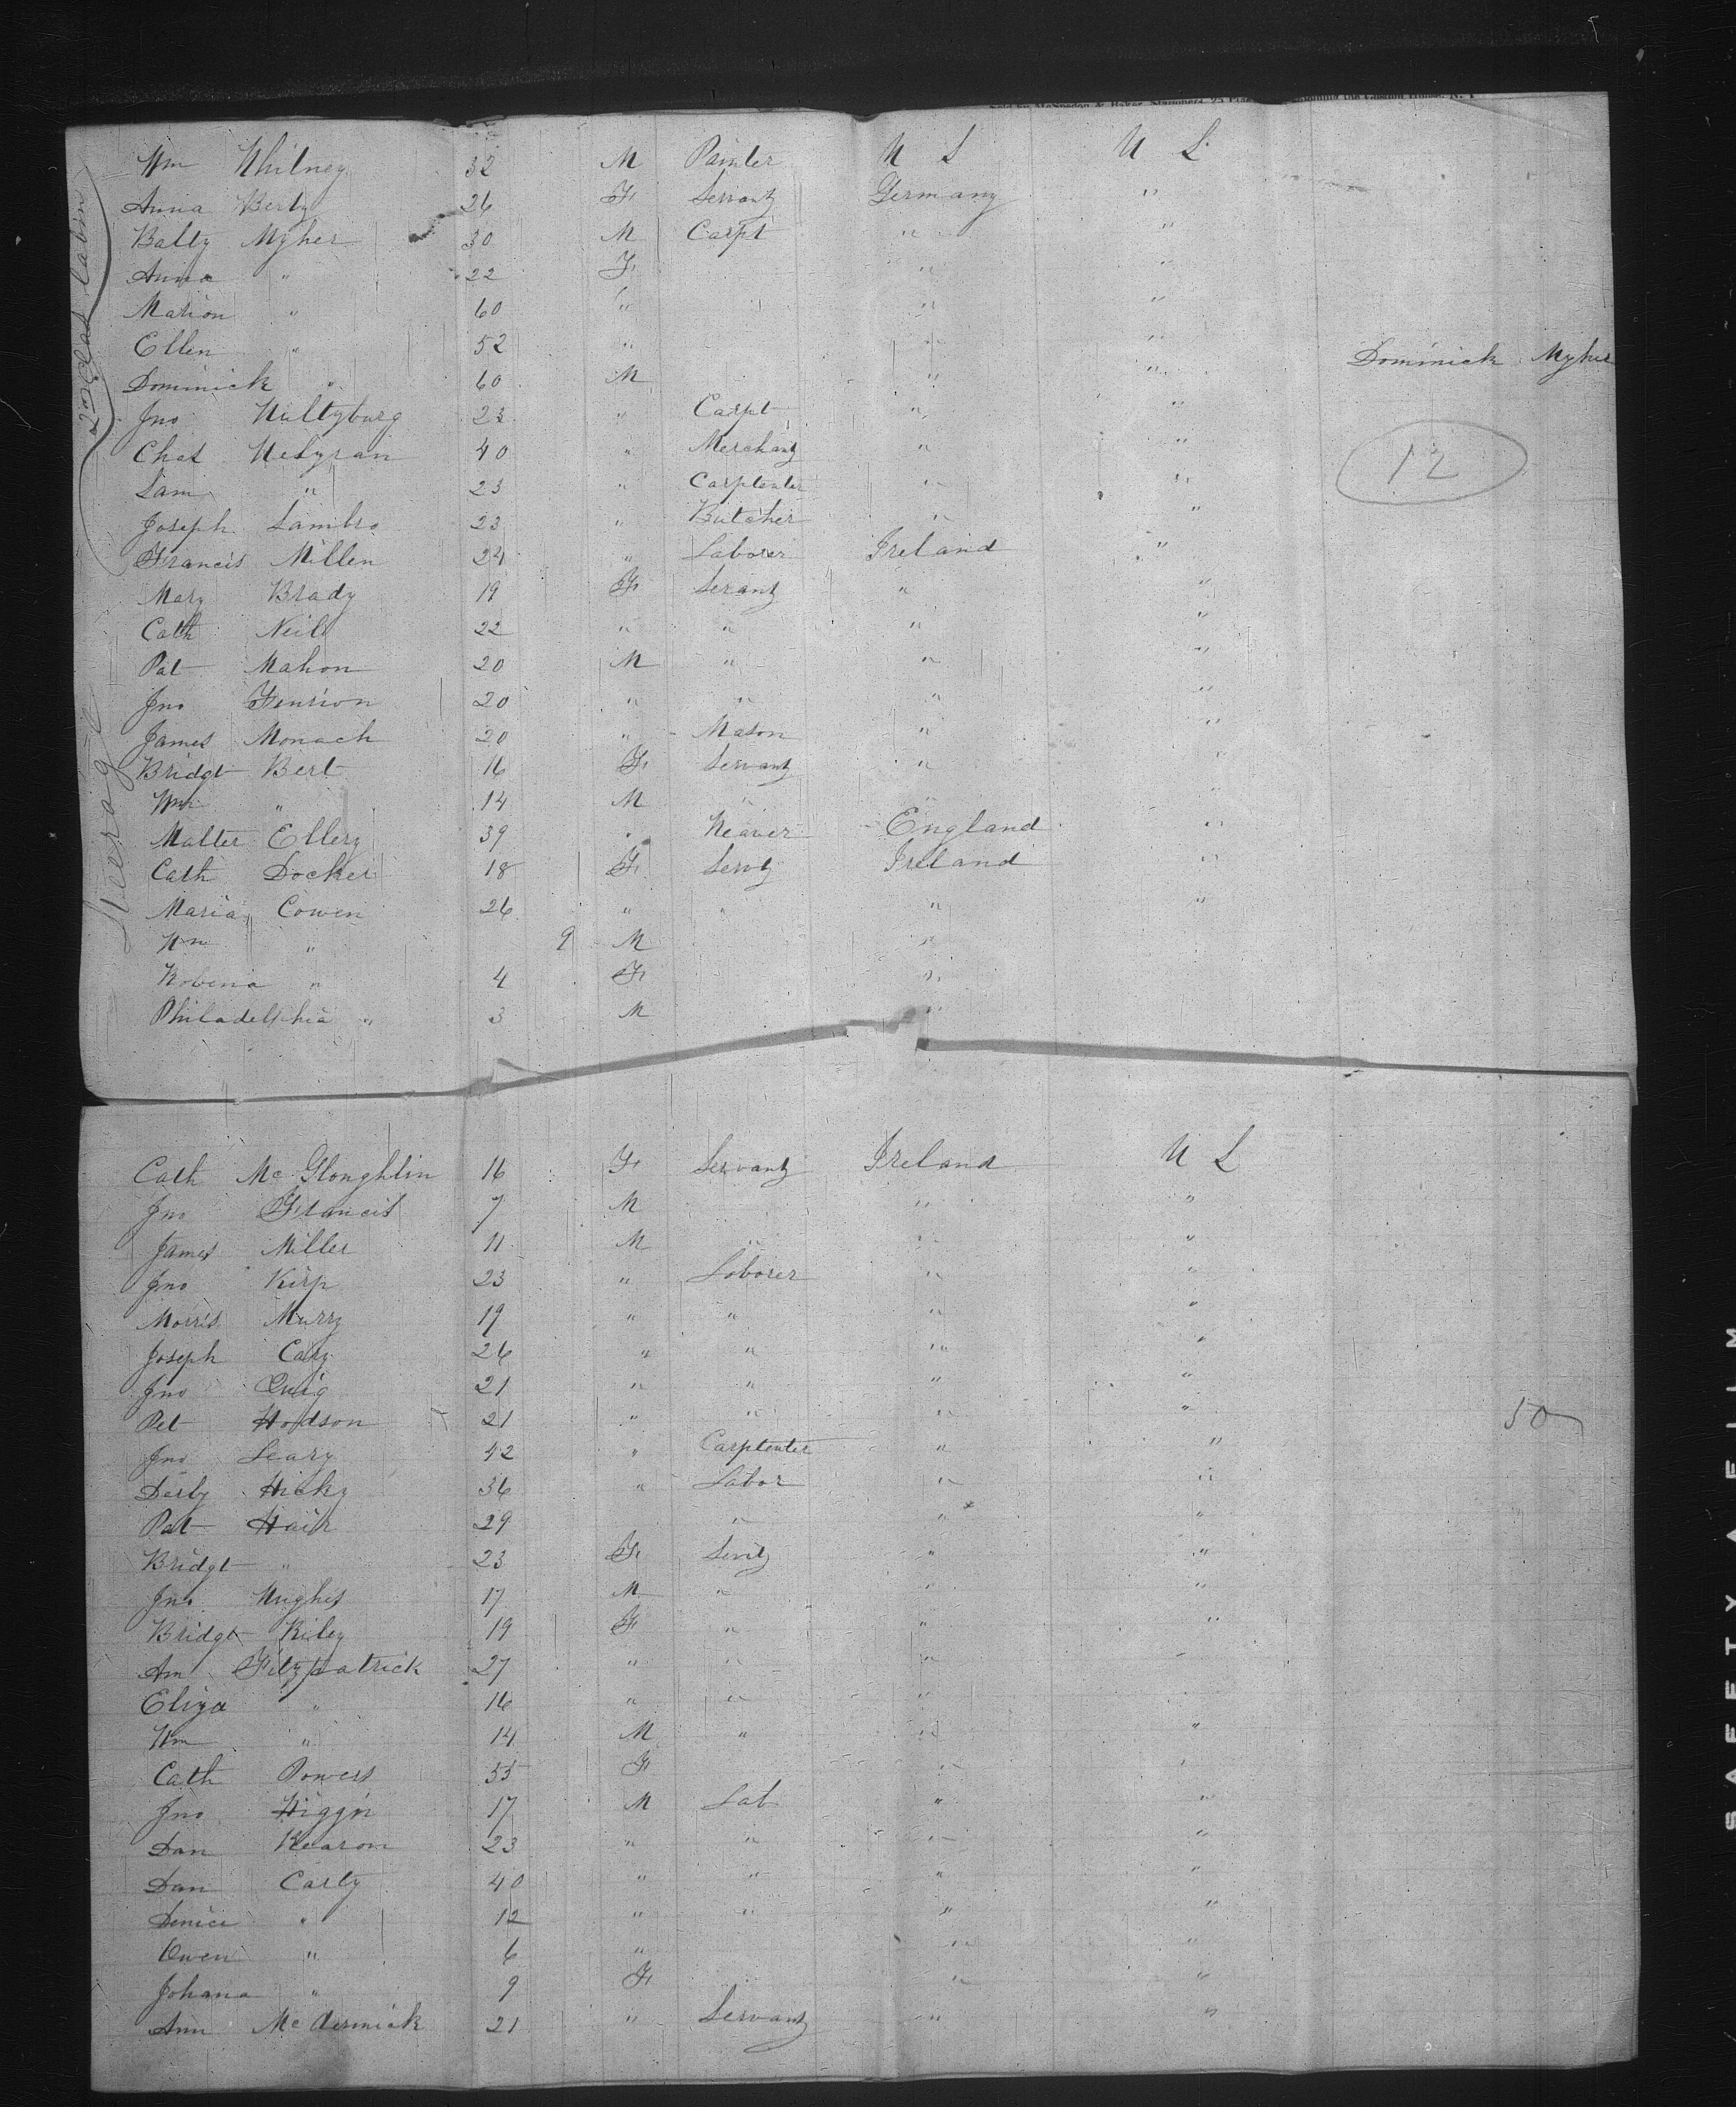 Wm Whitney 32 M Painter U S U S
Anna Berty 26 F Servant Germany "
Balty Myher 30 M Carpt " "
Anna " 22 F " "
Marion " 60 " " "
Ellen " 52 " " "
Dominick " 60 M " " Dominick Myher
Jno 23 " Carpt " "
Chas 40 " Merchant " "
Sam " 23 " Carptenter " " 12
Joseph Lambro 23 " Butcher " "
Francis Millen 24 " Laborer Ireland "
Mary Brady 19 F Serant " "
Cath Neil 22 " " " "
Pat Mahon 20 M " " "
Jno 20 " " " "
James Monach 20 " Mason " "
Bridgt Bert 16 F Servant " "
Wm " 14 M " " "
Walter Ellery 39 " Weaver England "
Cath Docker 18 F Servt Ireland "
Maria Cowen 26 " " " "
Wm " 9 M "
Rovena " 4 F "
Philadelphia " 3 M "
2nd Class Cabin
Steerage
Cath Mc Gloughlin 16 F Servant Ireland U S
Jno Francis 7 M " "
James Miller 11 M " " "
Jno Kirp 23 " Laborer " "
Morris Murry 19 " " " "
Joseph Cary 26 " " " "
Jno Quig 21 " " " "
Pet Hodson 21 " " " " 50
Jno Leary 42 " Carptenter " "
Derby Hicky 36 " Labor " "
Pat Hair 29 " " "
Bridgt " 23 F Servt " "
Jno Hughes 17 M " " "
Bridgt Riley 19 F " " "
Am Fitzpatrick 27 " " " "
Eliza " 16 " " " "
Wm " 14 M " " "
Cath Powers 35 F " "
Jno Higgin 17 M Lab " "
Dan Kearon 23 " " " "
Dan Carty 40 " " " "
Denice " 12 " " " "
Owen " 6 " " "
Johana " 9 F " "
Ann Mc dermick 21 " Servant " "
SAFETY FILM